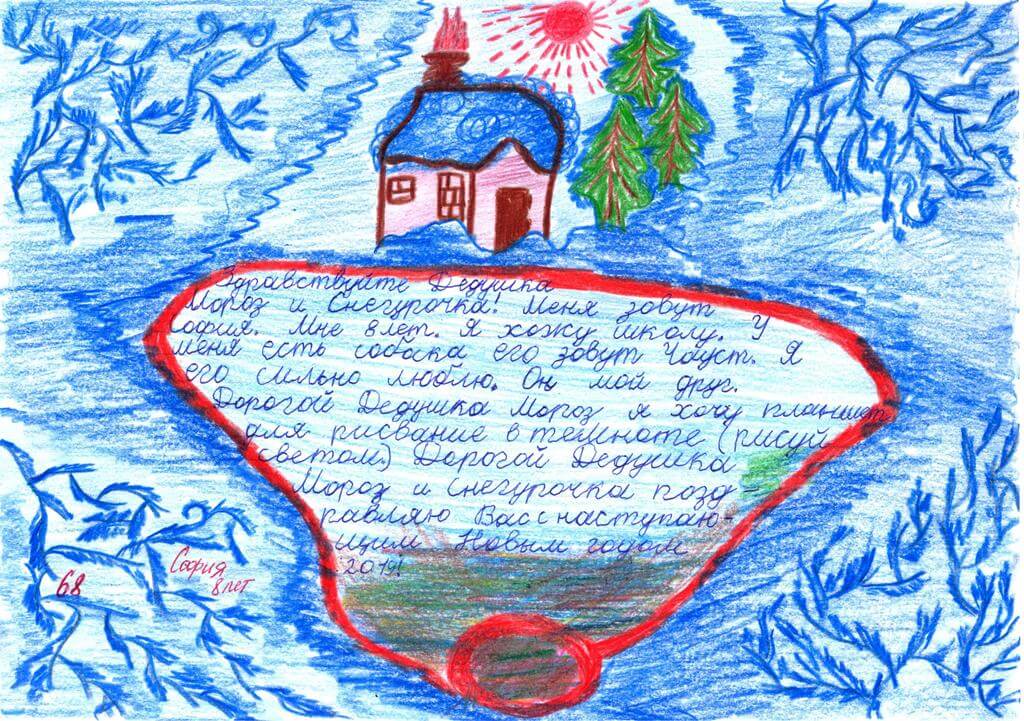 Здравствуйте Дедушка
Мороз и Снегурочка! Меня зовут
София. Мне 8 лет. Я хожу школу. У
меня есть собака его зовут Чауст. Я
его сильно люблю. Он мой друг.
Дорогой Дедушка Мороз я хочу планшет
для рисвание в темноте (рисуй
светом) Дорогой Дедушка
Мороз и Снегурочка позд-
равляю Вас с наступаю-
щим Новым годом
2019!
София
8 лет
68